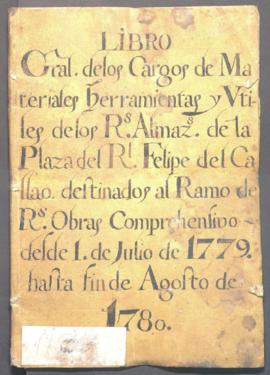 LIBRO
Gral. delos Cargos de Ma
teriales herramientas y Vti
les de los Rs. Almazs. de la
Plaza del Rl. Felipe del Ca
llao. destinados al Ramo de
Rs. Obras Comprehensivo
desde 1. de Julio de 1779.
hasta fin de Agosto de
1780.